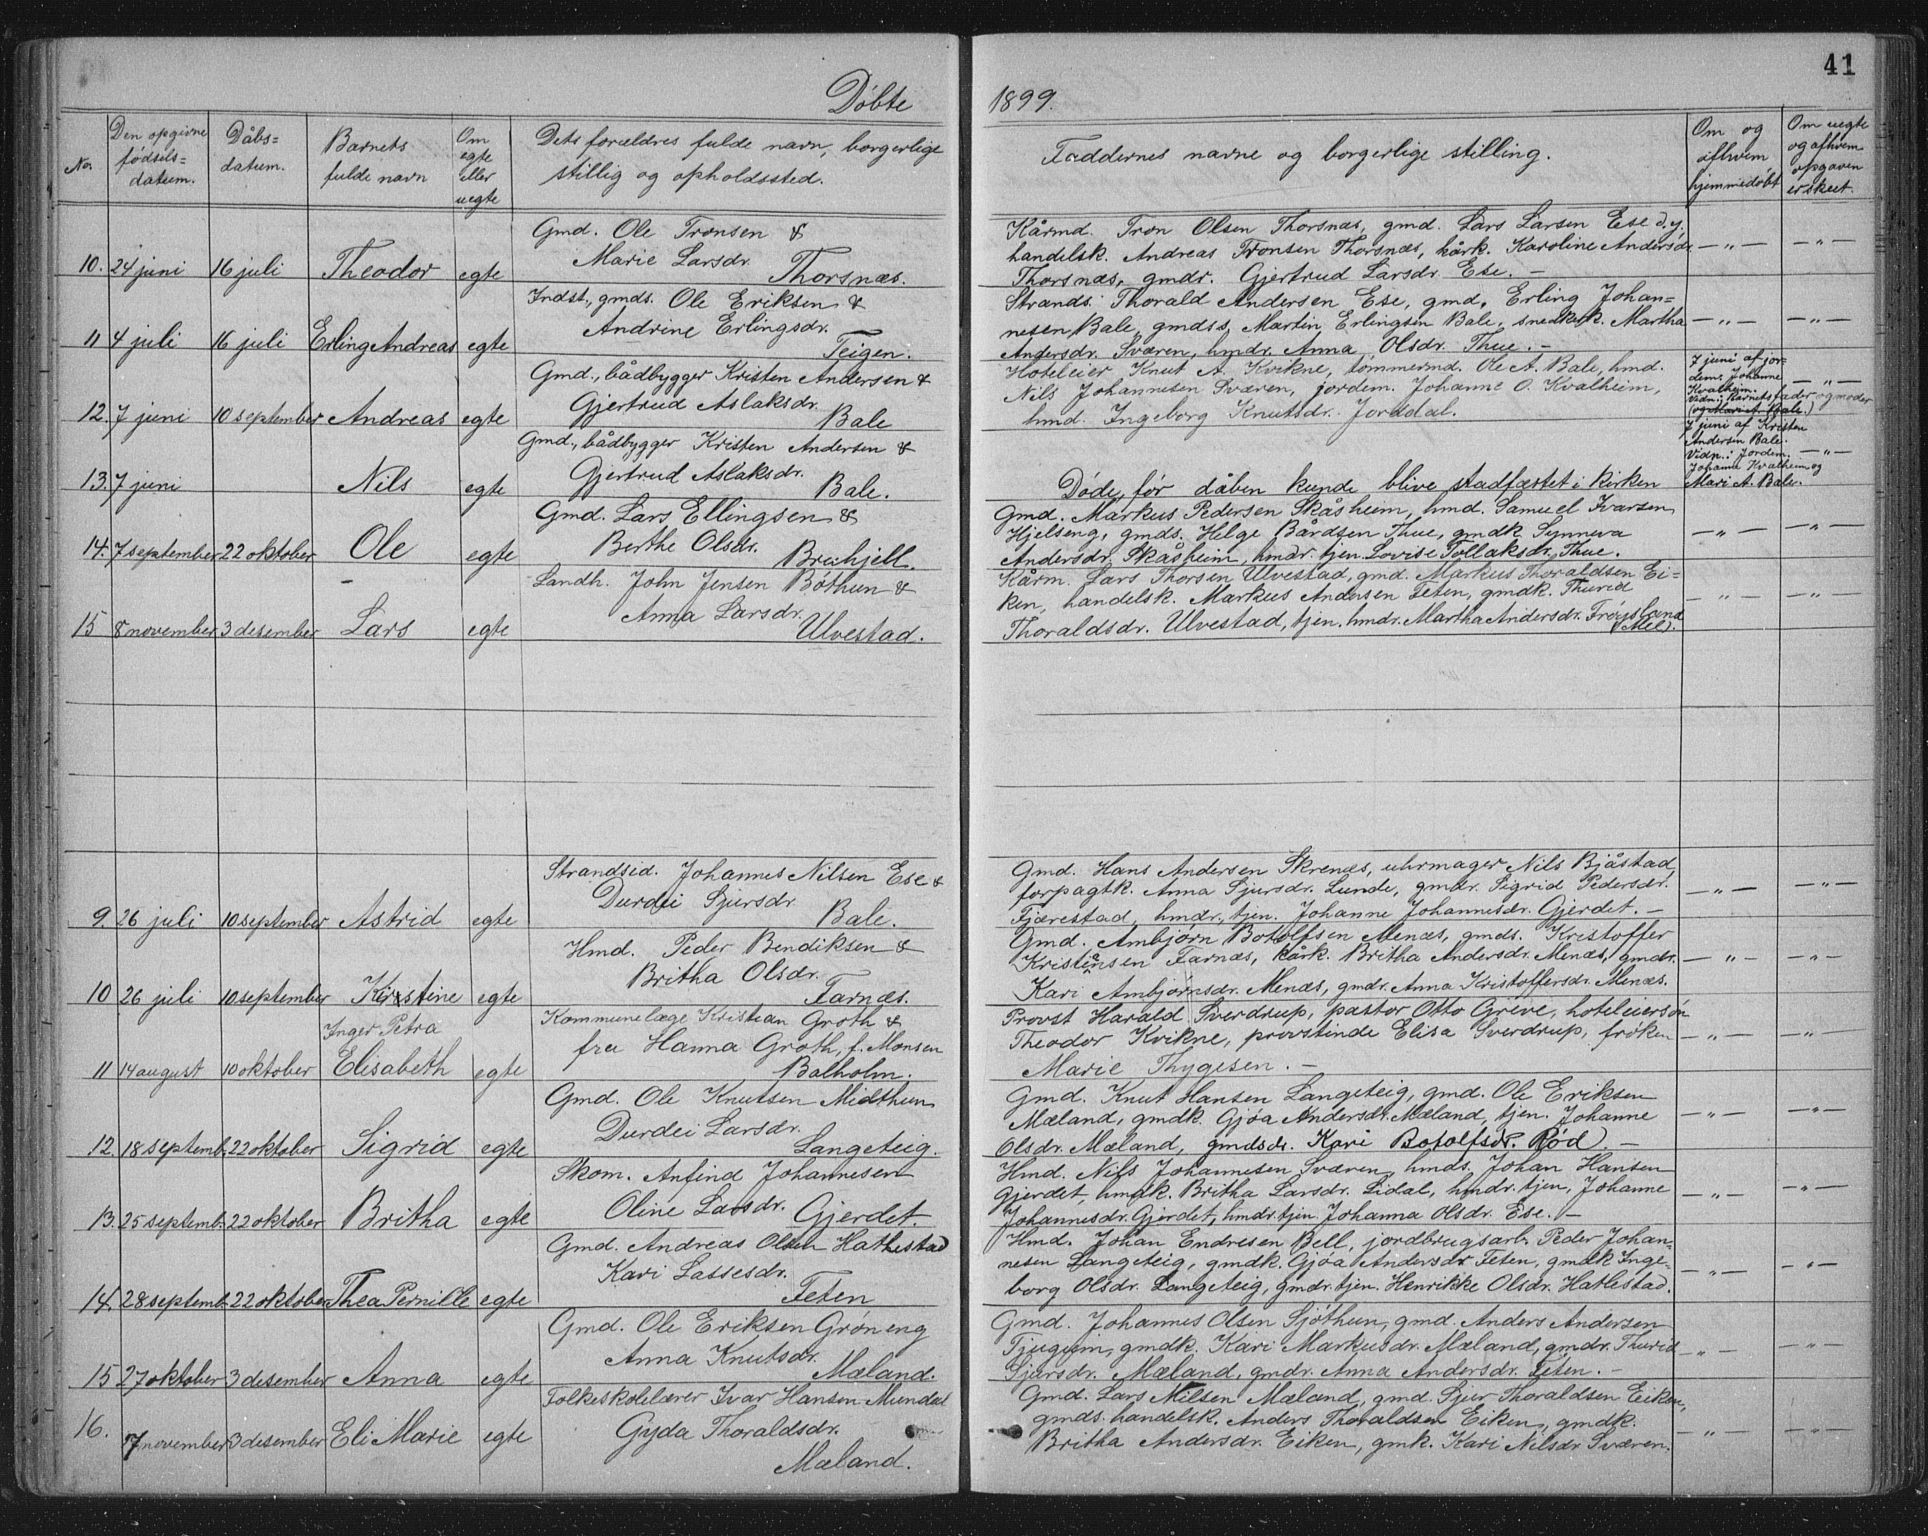 41
Døbte
1899.
No.
Den opgivne
fødsels-
datum.
Dåbs-
datum.
Barnets
fulde navn
Om
egte
eller
uegte
Dets forældres fulde navn, borgerlige
stillig og opholdssted.
Faddernes navne og borgerlige stilling.
Om og
afhvem
hjemmedøbt
Om uegte
og afhvem
opgaven
er skeet.
Gmd. Ole Tronsen &
Marie Larsdr.
10. 24 juni 16 juli Theodor egte Thorsnæs.
Kårmd. Tron Olsen Thorsnæs, gmd. Lars Larsen Ese d.y.
handelsk. Andreas Tronsen Thorsnæs, kårk. Karoline Andersdr
Thorsnæs, gmdr. Gjertrud Larsdr. Ese. —
— „ — — „ —
Indst., gmds. Ole Eriksen &
Andrine Erlingsdr.
11 4 juli 16 juli Erling Andreas egte Teigen.
Strands. Thorald Andersen Ese, gmd. Erling Johan=
nesen Bale, gmdss, Martin Erlingsen Bale, snedkrk. Martha
Andersdr. Sværen, hmdr. Anna Olsdr. Thue. —
— „ — — „ —
Gmd., bådbygger Kristen Andersen &
Gjertrud Aslaksdr.
12. 7 juni 10 september Andreas egte Bale
Hoteleier Knut A. Kvikne, tømmermd. Ole A. Bale, hmd.
Nils Johannesen Sværen, jordem. Johanne O. Kvalheim,
hmd. Ingeborg Knutsdr. Jorddal.
7 juni af jor-
dem. Johanne
Kvalheim.
Vidn.: Barnets fader og moder
(og Mari A. Bale.)
— „ —
Gmd., bådbygger Kristen Andersen &
Gjertrud Aslaksdr.
13. 7 juni Nils egte Bale.
Døde, før dåben kunde blive stadfæstet i kirken
7 juni af Kristen
Andersen Bale.
Vidn.: Jordem.
Johanne Kvalheim og
Mari A. Bale.
— „ —
Gmd. Lars Ellingsen &
Berthe Olsdr.
14. 7 september 22 oktober Ole egte Bræhjell.
Gmd. Markus Pedersen Skåsheim, hmd. Samuel Ivarsen
Hjelseng, gmds. Helge Bårdsen Thue, gmdk Synneva
Andersdr. Skåsheim, hmdr. tjen. Lovise Tollaksdr. Thue.
— „ — — „ —
Landh. John Jensen Bøthun &
Anna Larsdr.
15 8 november 3 desember Lars egte Ulvestad.
Kårm. Lars Thorsen Ulvestad, gmd. Markus Thoraldsen Ei=
ken, handelsk. Markus Andersen Feten, gmdk. Thurid
Thoraldsdr. Ulvestad, tjen. hmdr. Martha Andersdr. Frøysland
(Mel).
— „ — — „ —
Strandsid. Johannes Nilsen Ese &
Durdei Sjursdr
9. 26 juli 10 september Astrid egte Bale.
Gmd. Hans Andersen Skrenæs, uhrmager Nils Bjåstad,
forpagtk. Anna Sjursdr. Lunde, gmdr. Sigrid Pedersdr.
Fjærestad, hmdr. tjen. Johanne Johannesdr. Gjerdet. —
— „ — — „ —
Hmd. Peder Bendiksen &
Britha Olsdr.
10 26 juli 10 september Kirstine egte Farnæs.
Gmd. Ambjørn Botolfsen Menæs, gmds. Kristoffer
Kristiansen Farnæs, kårk. Britha Andersdr. Menæs, gmdr.
Kari Ambjørnsdr. Menæs, gmdr. Anna Kristoffersdr. Menæs.
— „ — — „ —
Kommunelæge Kristian Groth &
fru Hanna Groth, f. Monsen
Inger Petra
11 14 august 10 oktober Elisabeth egte Balholm.
Provst Harald Sverdrup, pastor Otto Grève, hoteleiersøn
Theodor Kvikne, provstinde Elisa Sverdrup, frøken
Marie Thygesen. —
— „ — — „ —
Gmd. Ole Knutsen Midthun
Durdei Larsdr.
12. 18 septemb. 22 oktober Sigrid egte Langeteig.
Gmd. Knut Hansen Langeteig, gmd. Ole Eriksen
Mæland, gmdk. Gjøa Andersdr. Mæland, tjen. Johanne
Olsdr. Mæland, gmdsdr. Kari Botolfsdr. Rød. —
— „ — — „ —
Skom. Anfind Johannesen
Oline Larsdr.
13. 25 septemb. 22 oktober Britha egte Gjerdet.
Hmd. Nils Johannesen Sværen, hmds. Johan Hansen
Gjerdet, hmdk. Britha Larsdr. Lidal, hmdr. tjen. Johanne
Johannesdr. Gjerdet, hmdr. tjen. Johanna Olsdr. Ese. —
— „ — — „ —
Gmd. Andreas Olsen Hatlestad
Kari Lassesdr.
14. 28 septemb. 22 oktober Thea Pernille egte Feten
Hmd. Johan Endresen Bell, jordbrugsarb. Peder Johan-
nesen Langeteig, gmdk. Gjøa Andersdr. Feten, gmdk Inge-
borg Olsdr. Langeteig, gmdr. tjen. Henrikke Olsdr. Hatlestad.
— „ — — „ —
Gmd. Ole Eriksen Grøneng
Anna Knutsdr.
15 27 oktober 3 desember Anna egte Mæland.
Gmd. Johannes Olsen Sjøthun, gmd. Anders Andersen
Tjugum, gmdk. Kari Markusdr. Mæland, gmdr. Thurid
Sjursdr. Mæland, gmdr. Anna Andersdr. Feten. —
— „ — — „ —
Folkeskolelærer Ivar Hansen Mundal
Gyda Thoraldsdr.
16. 7 november 3 desember Eli Marie egte Mæland.
Gmd. Lars Nilsen Mæland, gmd. Sjur Thoraldsen Eiken,
gmds. handelsk. Anders Thoraldsen Eiken, gmdk.
Britha Andersdr. Eiken, gmk. Kari Nilsdr. Sværen.
— „ — — „ —